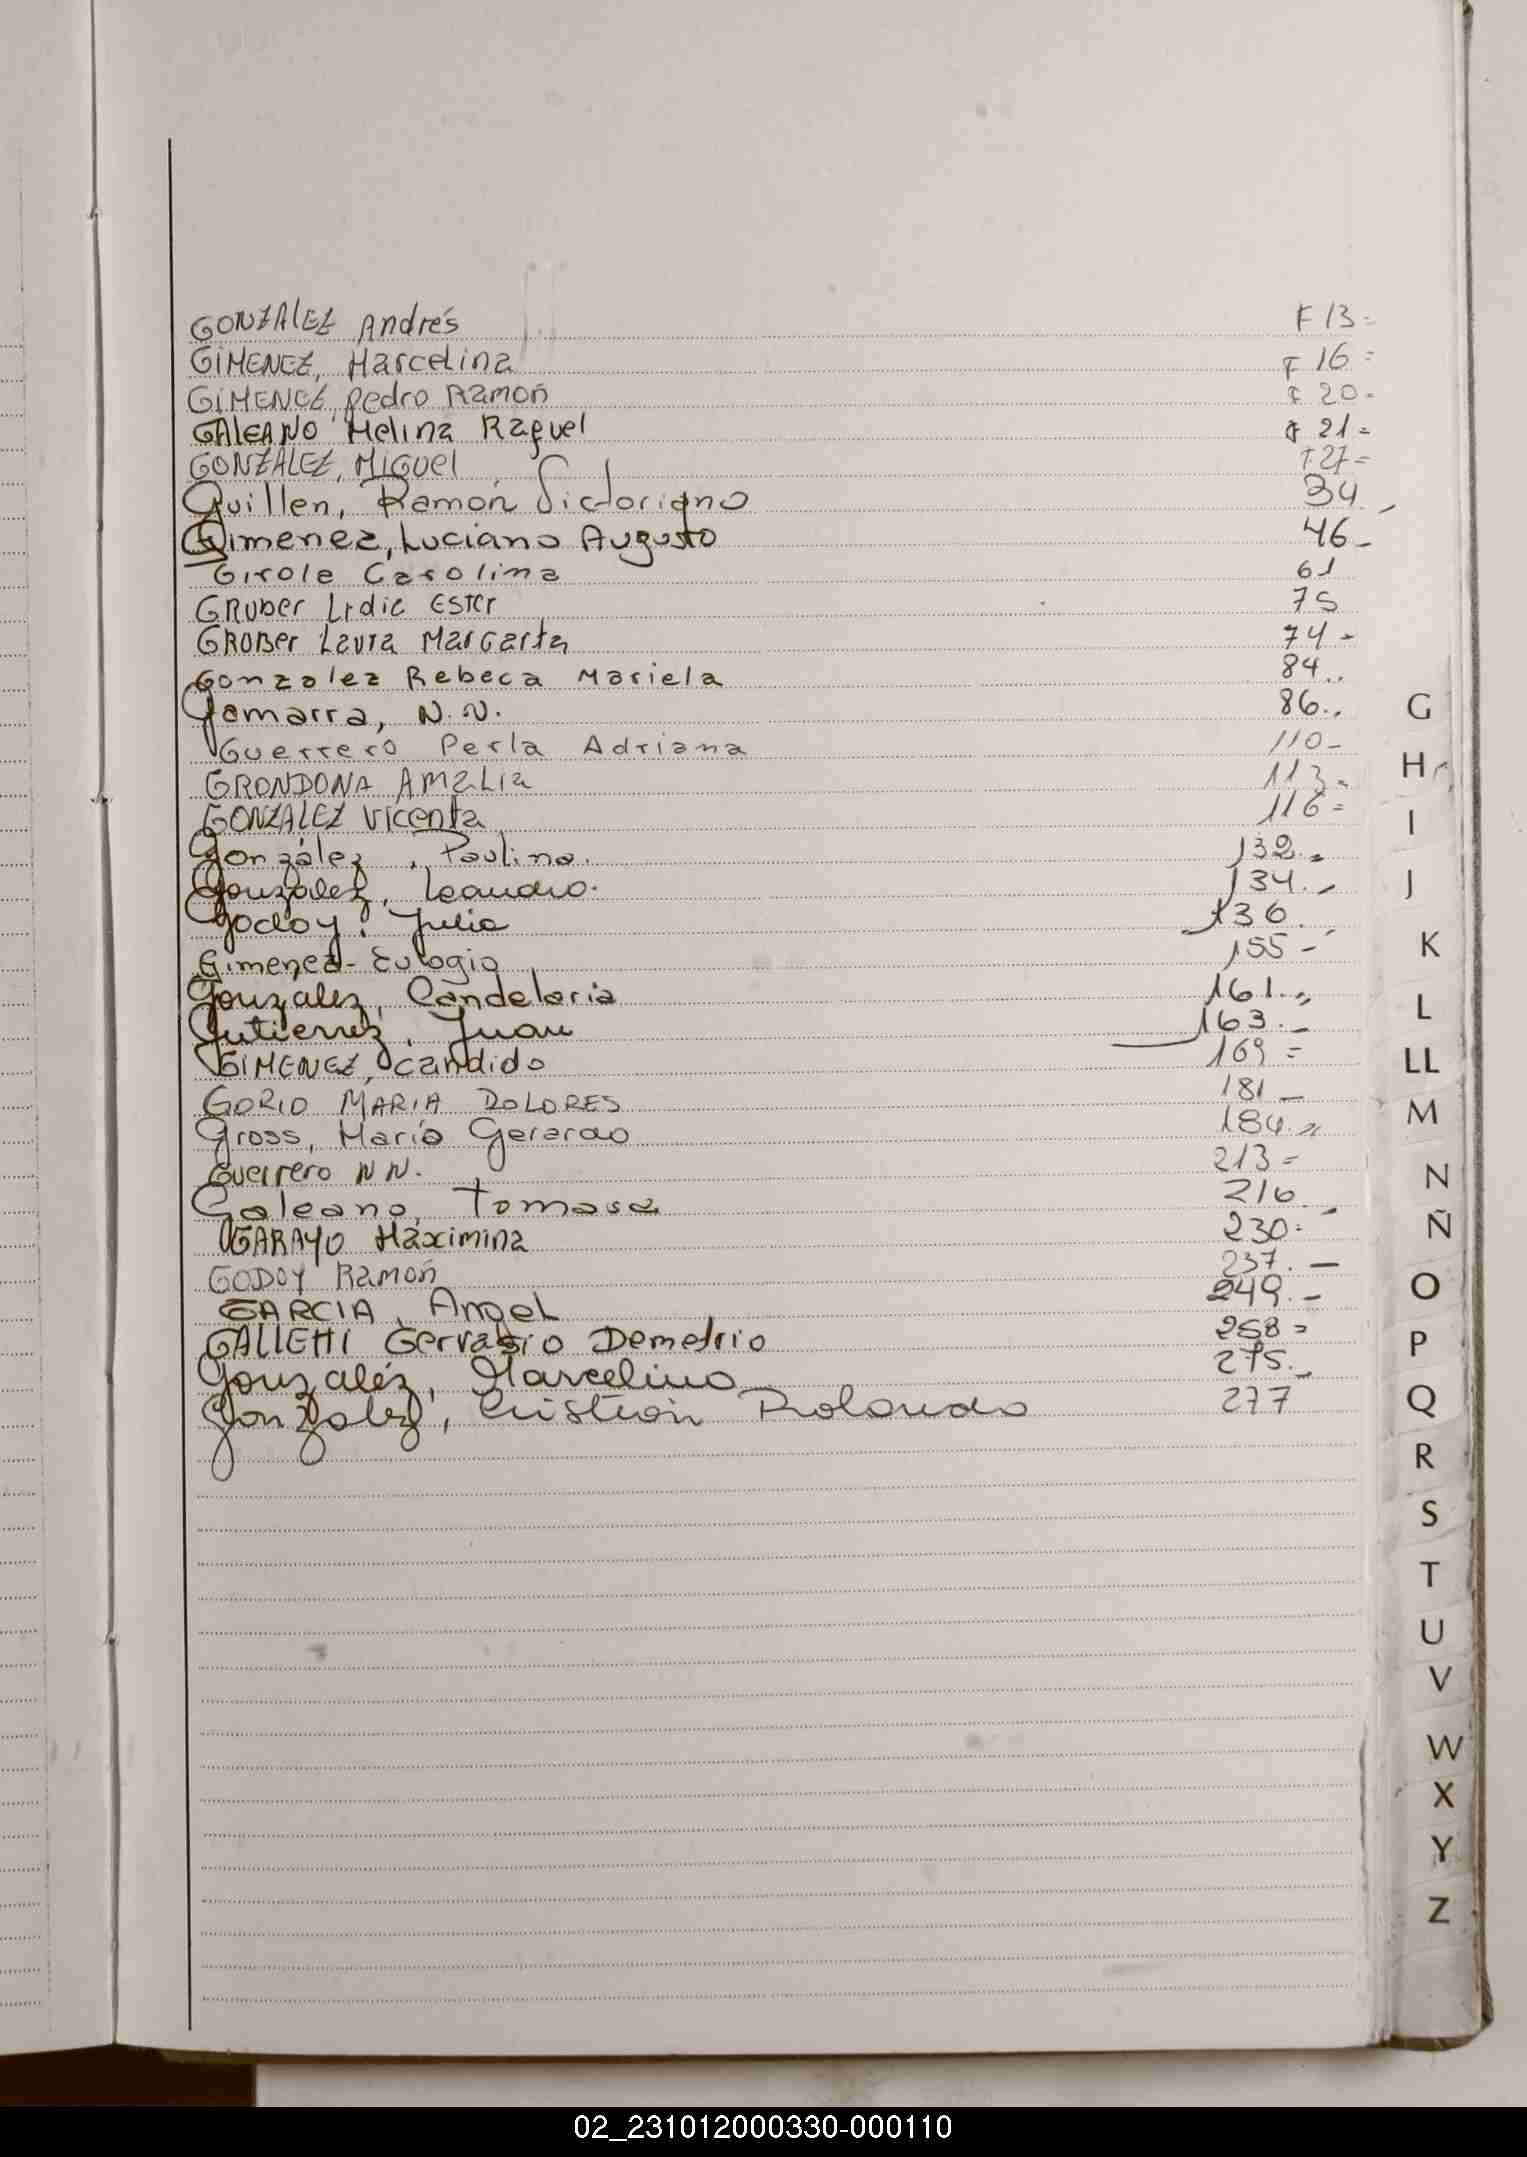 GONZALEZ Andrés F 13=
GIMENEZ, Marcelina F 16=
GIMENEZ, Pedro Ramón F 20=
GALEANO Melina Raquel F 21=
GONZALEZ, Miguel F 27=
Guillen, Ramón Victoriano 34
Gimenez, Luciano Augusto 46-
Girole Carolina 61
GRUBER Lidic ESTEr 75
GROBER Laura Margarita 74-
Gonzalez Rebeca Mariela 84..
Gamarra, N.N. 86..
Guerrero Perla Adriana 110-
GRONDONA AMALIA 113=
GONZALEZ Vicenta 116=
González, Paulina. 132.=
González, Leandro. 134.-
Godoy, Julia 136.-
Gimenez- Eulogio 155-
Gonzalez, Candelaria 161.=
Gutierrez, Juan 163.-
GIMENEZ, Candido 169=
GORIO MARIA DOLORES 181-
Gross, Mario Gerardo 184.=
Guerrero NN. 213=
Galeano, Tomasa 216.-
GARAYO Máximina 230=
GODOY Ramón 237.-
GARCIA, Angel 249.-
Gervasio Demetrio 258=
Gonzaléz, Marcelino 275.-
González, Cristian Rolando 277
G
H
I
J
K
L
LL
M
N
Ñ
O
P
Q
R
S
T
U
V
W
X
Y
Z
02_231012000330-000110